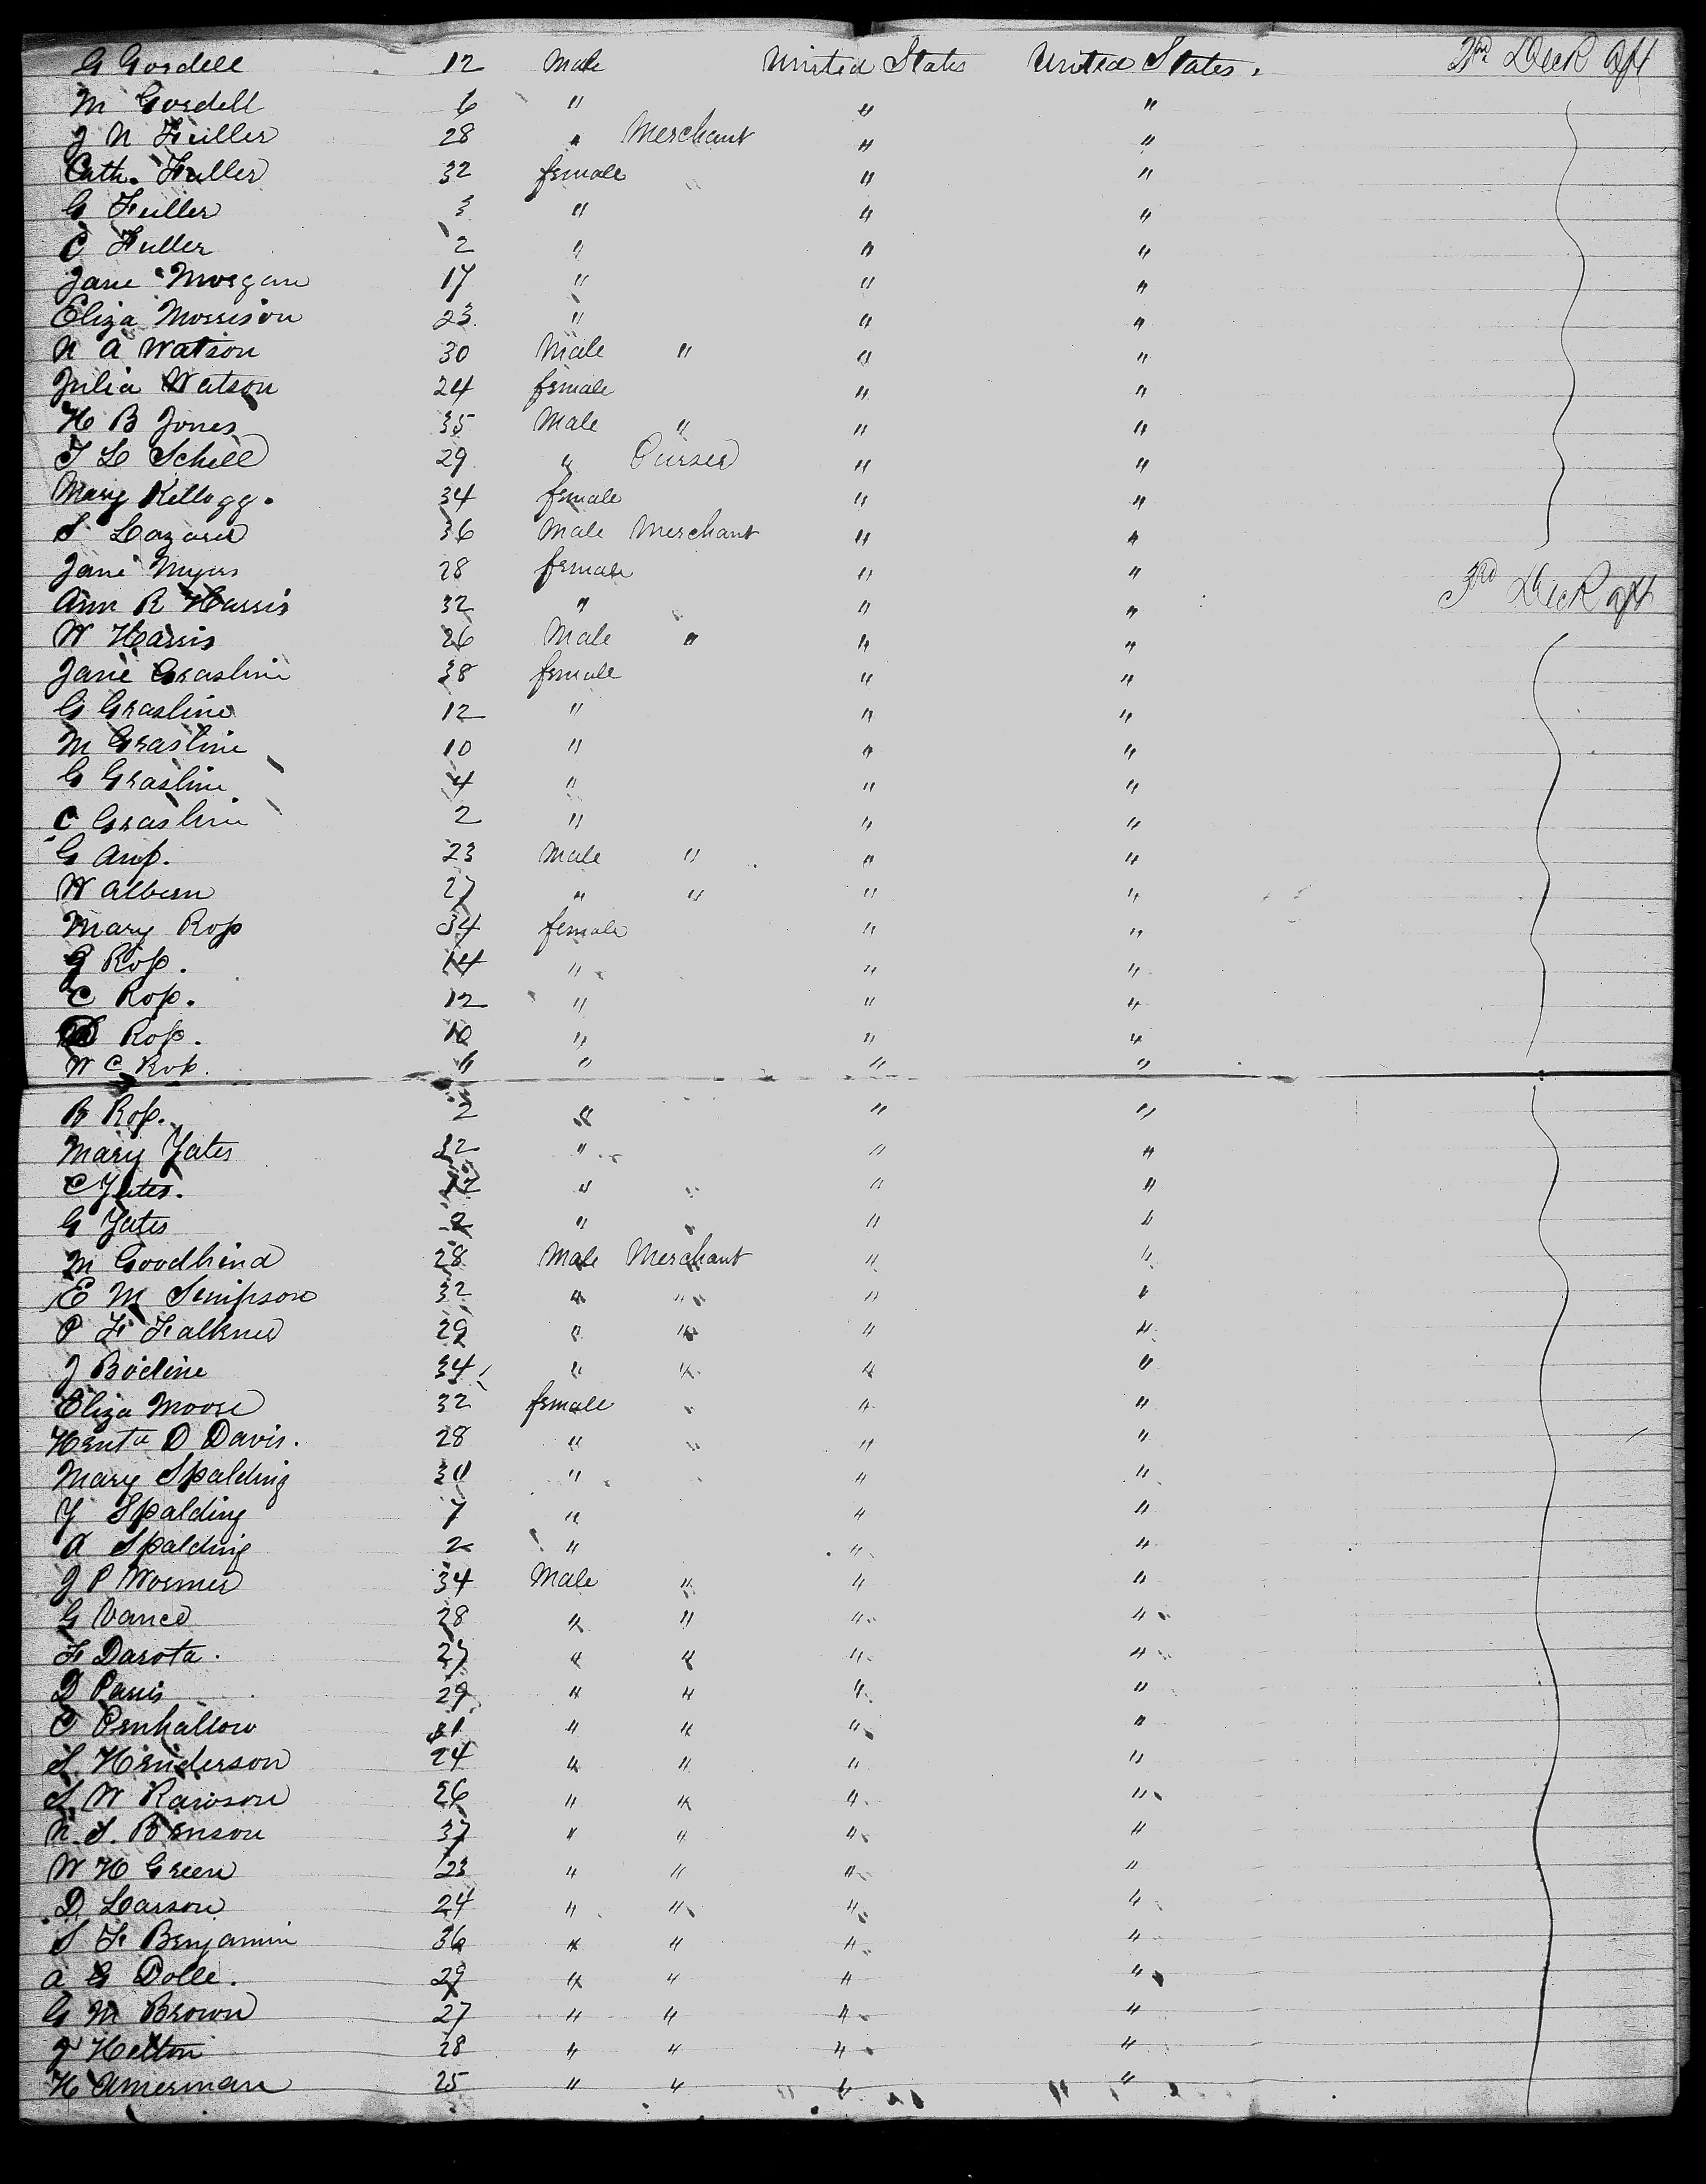 G Gordell 12 Male United States United States. 2nd Deck aft
M Gordell 6 " " "
J N Fuller 28 " Merchant " "
Cath. Fuller 32 female " "
G Fuller 3 " " "
C Fuller 2 " " "
Jane Morgan 17 " " "
Eliza Morrison 23 " " "
N A Watson 30 Male " " "
Julia Watson 24 female " "
H B Jones 35 Male " " "
T L Schell 29 " Purser " "
Mary Kellogg. 34 female " "
S Lazarus 36 Male Merchant " "
Jane Myers 28 female " " 3rd Deck aft
Ann R Harris 32 " " "
W Harris 26 Male " " "
Jane Grasline 38 female " "
G Grasline 12 " " "
M Grasline 10 " " "
G Grasline 4 " " "
C Grasline 2 " " "
G 23 Male " " "
W Albern 27 " " " "
Mary Ross 34 female " "
G Ross. 14 " " "
C Ross. 12 " " "
Ross. 10 " " "
W C Ross. " " "
R Ross. 2 " " "
Mary Yates 32 " " "
C Yates. 12 " " "
G Yates 2 " " "
M Goodhind 28 Male Merchant " "
E M Simpson 32 " " " "
P F Falkner 29 " " " "
J Bodine 34 " " " "
Eliza Moore 32 female " "
Henta D Davis. 28 " " "
Mary Spalding 30 " " "
Y Spalding 7 " " "
A Spalding 2 " " "
J P Wormer 34 Male " " "
G Vance 28 " " " "
F Darota. 27 " " " "
D Parris 29 " " " "
C Penhallow 31 " " " "
S. Henderson 24 " " " "
S W Rawson 26 " " " "
N. S. Benson 37 " " " "
W H Green 23 " " " "
D Larson 24 " " " "
S F Benjamin 36 " " " "
A G Dolle. 29 " " " "
G M Brown 27 " " " "
J Helton 28 " " " "
H Amerman 25 " " " "